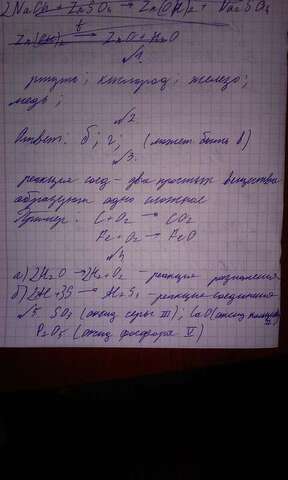 2NaOH + ZnSO₄ → Zn(OH)₂ + Na₂SO₄
Zn(OH)₂ t→ ZnO + H₂O
№1.
ртуть; кислород; железо;
медь;
№2
Ответ: б; г; (может быть в)
№3.
реакция соед - два простых вещества
образуют одно сложное
Пример: C + O₂ → CO₂
Fe + O₂ → FeO
№4
а) 2H₂O → 2H₂ + O₂ - реакция разложения
б) 2Al + 3S → Al₂S₃ - реакция соединения
№5 SO₃ (оксид серы III); CaO (оксид кальция
P₂O₅ (оксид фосфора V)